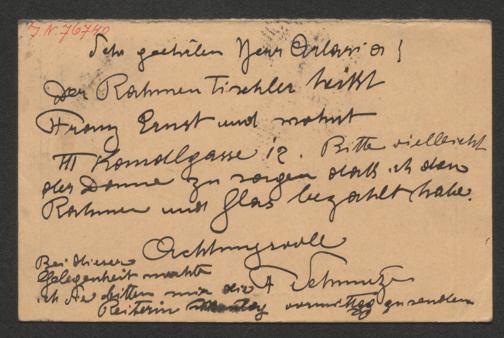 I N. 76740
Sehr geehrter Herr Artaria!
Der Rahmen Tischler heißt
Franz Ernst und wohnt
III Kandlgasse 12. Bitte vielleicht
der Donne zu sagen daß ich den
Rahmen und Glas bezahlt habe.
Achtungsvoll
A Schmutzer
Bei dieser
Gelegenheit möchte
ich Sie bitten mir die
Reiterin vormittag zu senden